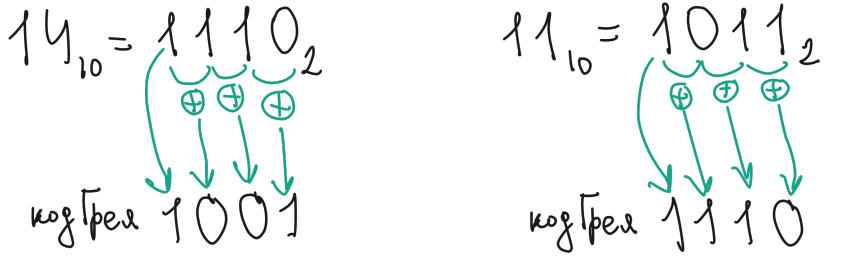 14₁₀ = 1110₂
⊕ ⊕ ⊕
код Грея 1001
11₁₀ = 1011₂
⊕ ⊕ ⊕
код Грея 1110